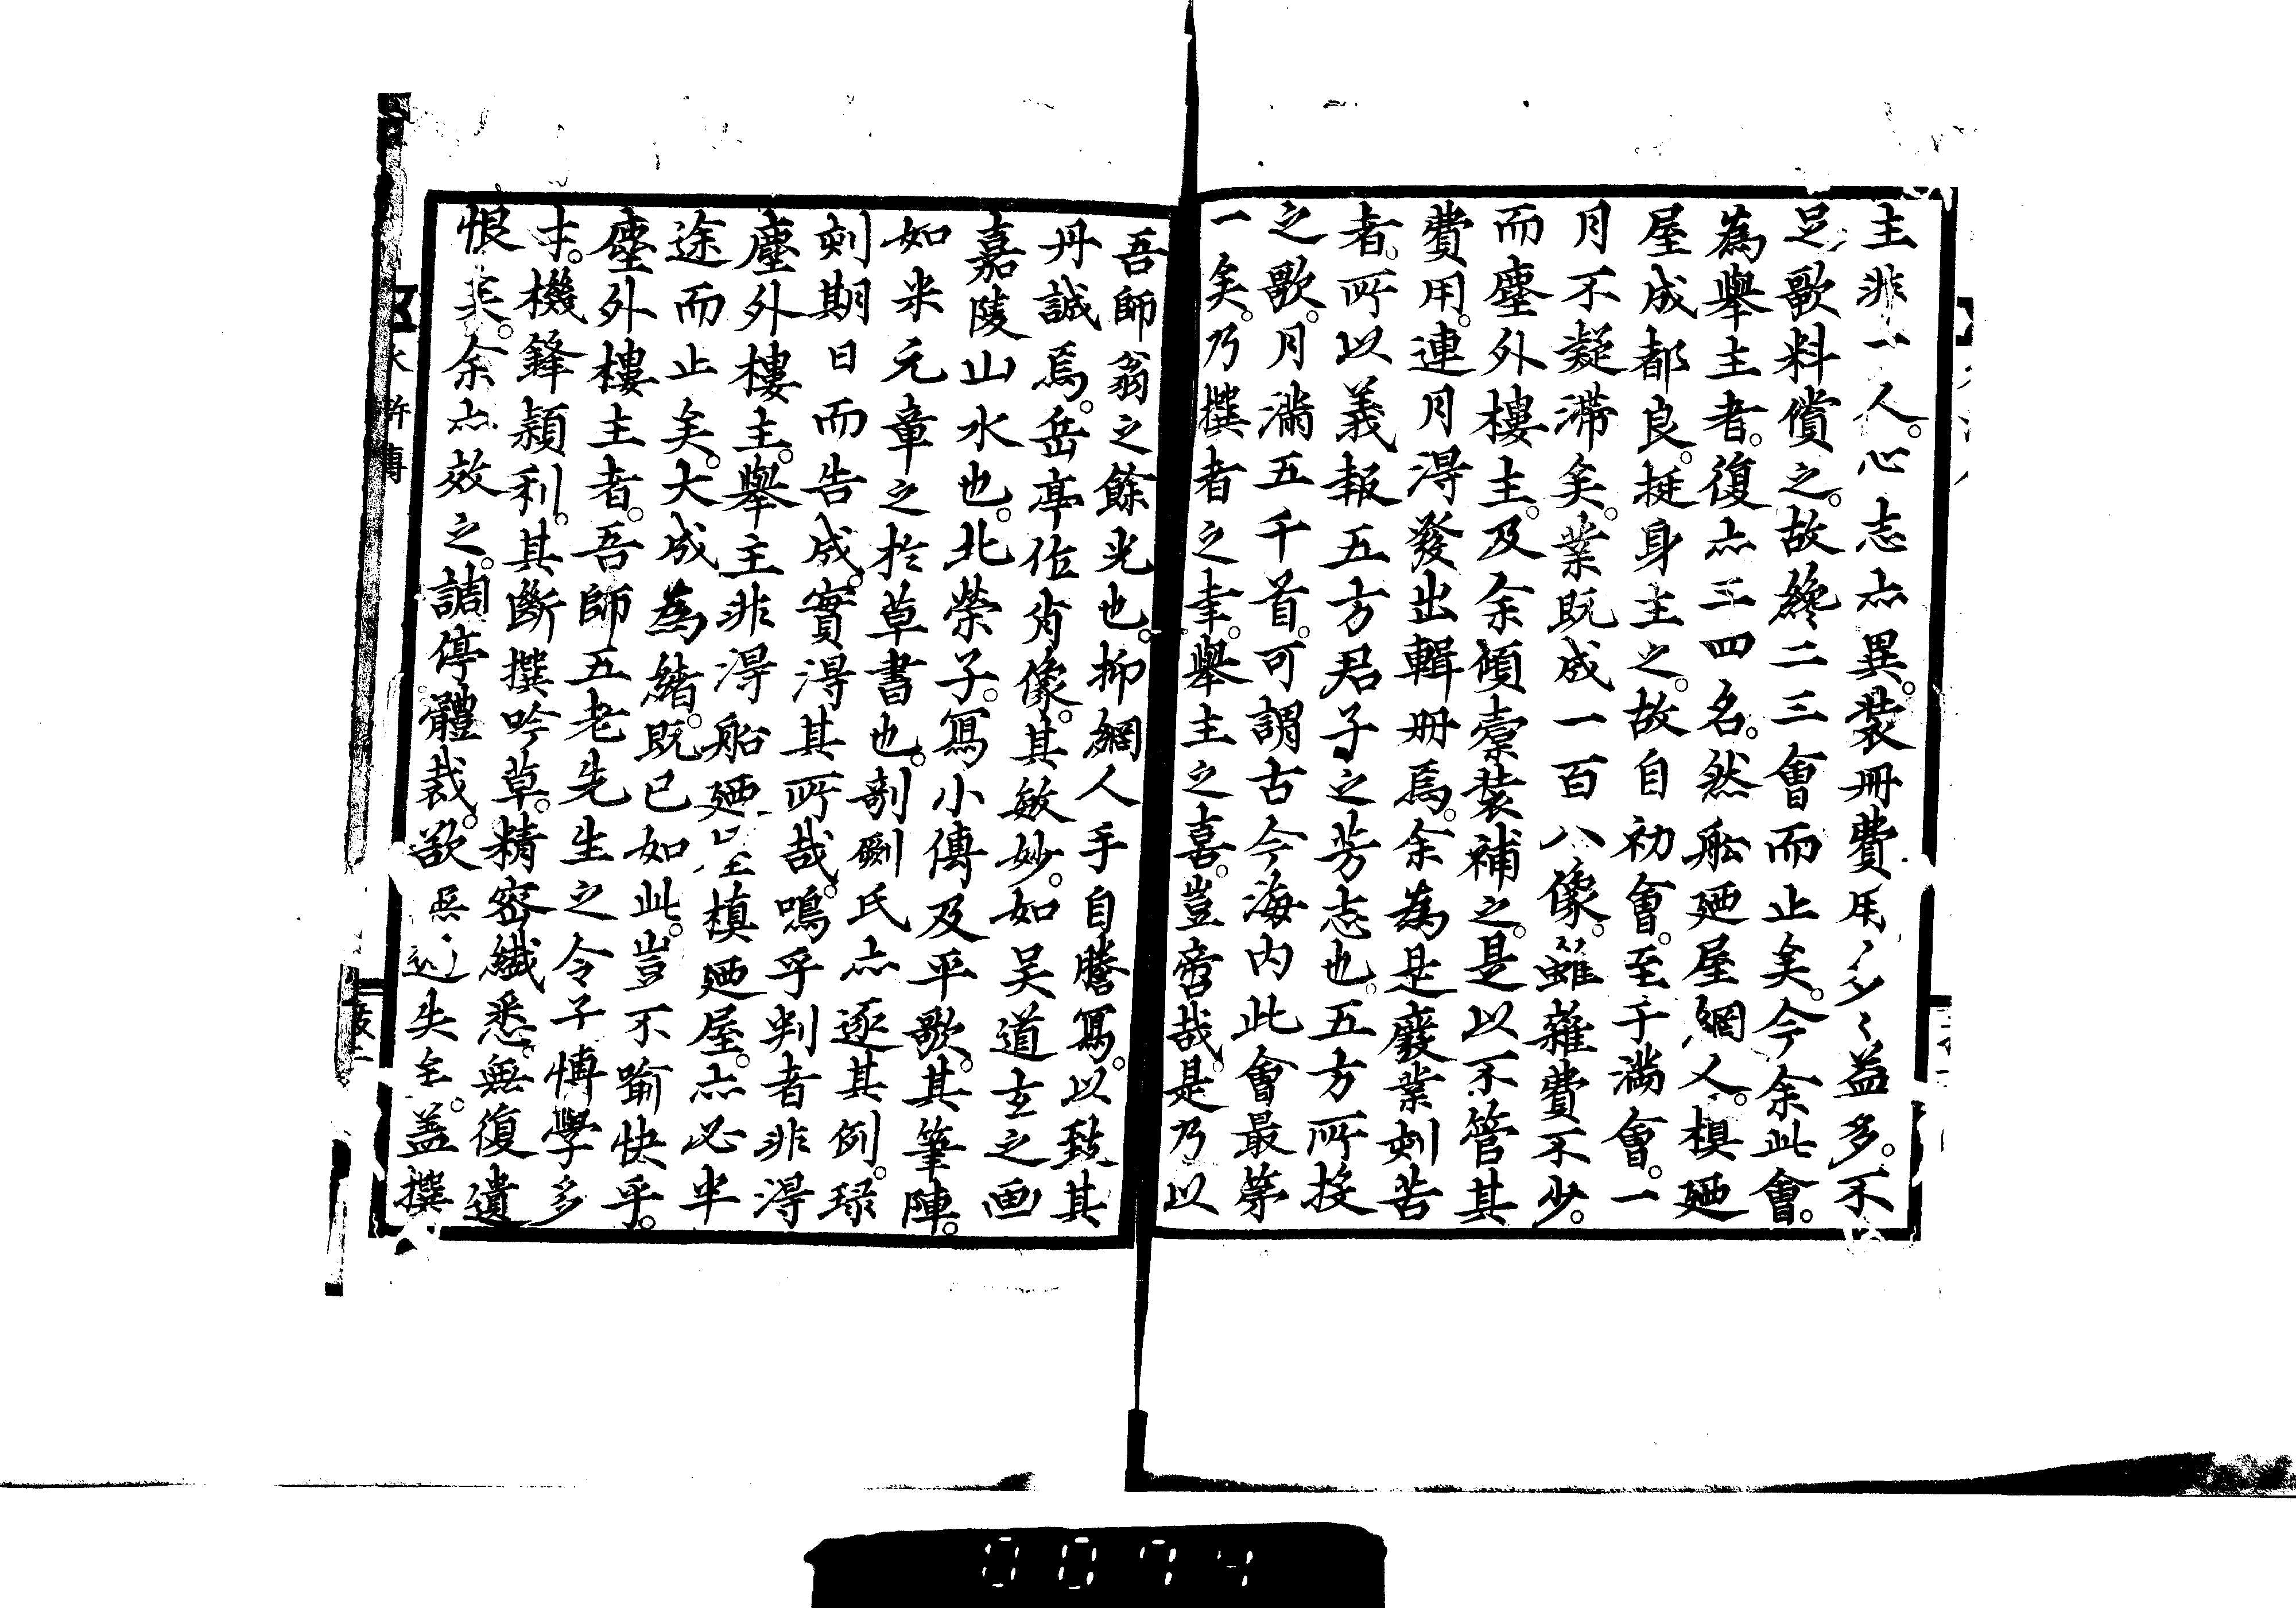 主非一人。心志亦異。裝冊費用多々益多。不
足歌料償之。故纔二三會而止矣。今余此會。
為舉主者。復亦三四名。然船廼屋網人。槙廼
屋成都良。挺身主之。故自初會。至于滿會。一
月不凝滯矣。業既成一百八像。雖雜費不少。
而塵外樓主。及余傾橐裝補之。是以不管其
費用。連月得發出輯冊焉。余為是廢業刻苦
者。所以義報五方君子之芳志也。五方所投
之歌。月滿五千首。可謂古今海內此會最第
一矣。乃撰者之幸。舉主之喜。豈啻哉。是乃以
吾師翁之餘光也。抑網人手自謄寫。以致其
丹誠焉。岳亭作肖像。其敏妙。如吴道玄之画
嘉陵山水也。北榮子。寫小傳及平歌。其筆陣。
如米元章之於草書也。剞劂氏亦逐其例。琭
刻期日而告成。實得其所哉。鳴乎判者非得
塵外樓主。舉主非得船廼屋槙廼屋。亦必半
途而止矣。大成為緒。既已如此。豈不喻快乎。
塵外樓主者。吾師五老先生之令子。博學多
才。機鋒穎利。其斷撰吟草。精密纖悉。無復遺
恨矣。余亦效之。調停體裁。欲無過失至。盖撰
水滸傳
0074